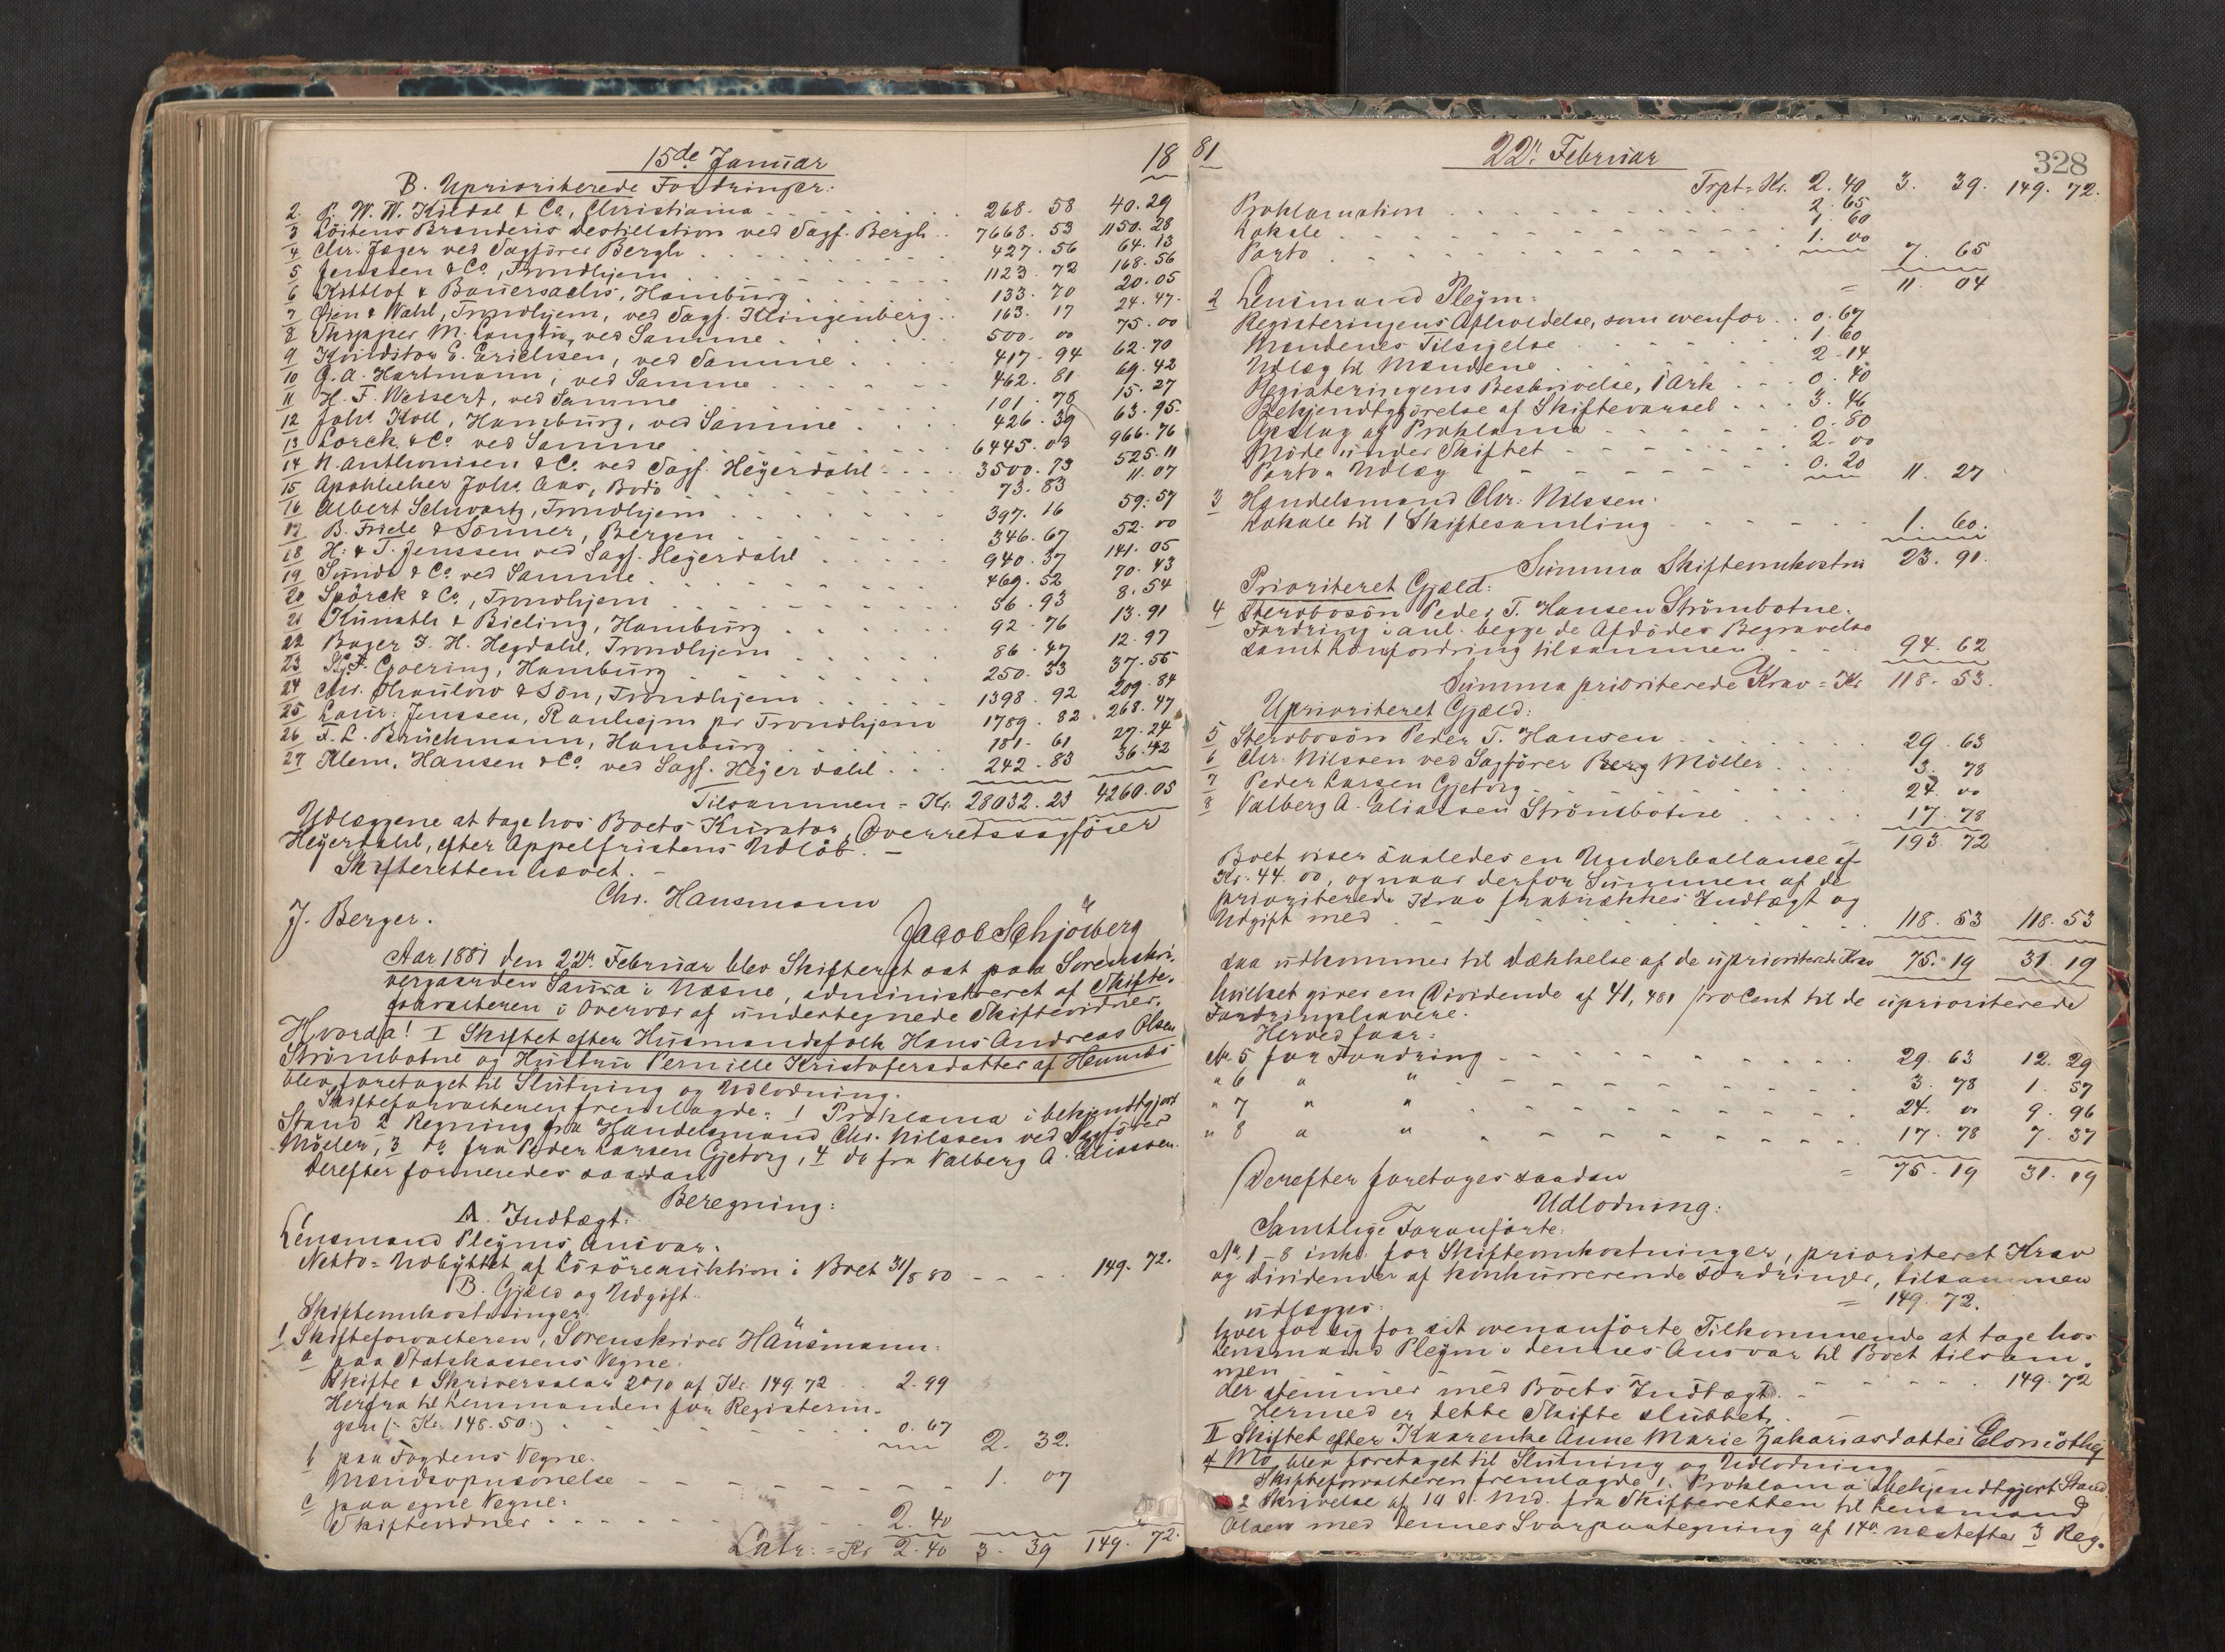 15de Januar 18
B. Uprioriterede Fordringer:
2. P. W. W. Kildal & Co, Christiania 268. 58 40. 29
3 Löitens Brænderis Destillation ved Sagf. Bergh 7668. 53 1150. 28
4 Chr. Jæger ved Sagförer Bergh 427. 56 64. 13
5 Jenssen & Co, Trondhjem 1123. 72 168. 56
6 Kottlof & Bauersachs, Hamburg 133. 70 20. 05
7 Öien & Wahl, Trondhjem, ved Sagf. Klingenberg 163. 17 24. 47.
8 Skipper M. Langlo, ved Samme 500. 00 75. 00
9 Konditor E. Erichsen, ved Samme 417. 94 62. 70
10 G. A. Hartmann, ved Samme 462. 81 69. 42
11 H. F. Weisert, ved Samme 101. 78 15. 27
12 Johs Koll, Hamburg, ved Samme 426. 39 63. 95.
13 Lorck & Co ved Samme 6445. 03 966. 76
14 N. Anthonisen & Co ved Sagf. Heÿerdahl 3500. 73 525. 11
15 Apotheker Johs Aas, Bodö 73. 83 11. 07
16 Albert Schwartz, Trondhjem 397. 16 59. 57
17 B. Friele & Sönner, Bergen 346. 67 52. 00
18 H. & T. Jenssen ved Sagf. Heÿerdahl 940. 37 141. 05
19 Sunde & Co ved Samme 469. 52 70. 43
20 Spörck & Co, Trondhjem 56. 93 8. 54
21 Kunath & Bieling, Hamburg 92. 76 13. 91
22 Bager J. H. Hegdahl, Trondhjem 86. 47 12. 97
23 Goering, Hamburg 250. 33 37. 55
24 Chr. Thaulow & Sön, Trondhjem 1398. 92 209. 84
25 Laur: Jenssen, Ranheim pr Trondhjem 1789. 82. 268. 47
26 F. L. Brückmann, Hamburg 181. 61 27. 24
27 Klem, Hansen & Co ved Sagf. Heÿerdahl 242. 83 36. 42
Tilsammen = Kr. 28032. 23 4260. 05
Udlæggene at tage hos Boets Kurator, Overretssagförer
Heÿerdahl, efter Appelfristens Udlöb. —
Skifteretten hævet. —
Chr. Hansmann
J. Berger. Jacob Schjösberg
Aar 1881 den 22de Februar blev Skifteret sat paa Sorenskri-
vergaarden Saura i Næsne, administreret af Skifte-
forvalteren i Overvær af undertegnede Skiftevidner.
Hvorda! I Skiftet efter Husmandsfolk Hans Andreas Olsen
Strömbotne og Hustru Pernille Kristofersdatter af Hemnæs
blev foretaget til Slutning og Udlodning.
Skifteforvalteren fremlagde: 1 Proklama i bekjendtgjort
Stand 2 Regning fra Handelsmand Chr. Nilssen ved Sagförer
Möller, 3 do fra Peder Larsen Gjetvig, 4 do fra Valberg A. Eliassen.
Derefter formeredes saadan
Beregning:
A. Indtægt:
Lensmand Pleÿms Ansvar.
Netto-Udbÿttet af Lösöreauktion i Boet 31/8 80 149. 72.
B. Gjæld og Udgift.
Skifteomkostninger.
1 Skifteforvalteren, Sorenskriver Hansmann:
a paa Statskassens Vegne.
Skifte & Skriversalær 2% af Kr. 149. 72 2. 99
Herfra til Lensmanden for Registerin-
gen (: Kr. 148. 50:) 0. 67 2. 32.
b paa Fogdens Vegne.
Mandsopnævnelse 1. 07
c paa egne Vegne:
Skiftevidner 2. 40
Latr. = Kr 2. 40 3. 39 149. 72.
81 22de Februar 328
Trpt = Kr. 2. 40 3. 39. 149. 72.
Proklamation 2. 65
Lokale 1. 60
Porto 1. 00 7. 65
= 11. 04
2 Lensmand Pleÿm:
Registeringens Afholdelse, som ovenfor 0. 67
Mændenes Tilsigelse 1. 60
Udlæg til Mændene 2. 14
Registeringens Beskrivelse, 1 Ark 0. 40
Bekjendtgjörelse af Skiftevarsel 3. 46
Opslag af Proklama 0. 80
Möde under Skiftet 2. 00
Porto-Udlæg 0. 20 11. 27
3 Handelsmand Chr: Nilssen:
Lokale til 1 Skiftesamling 1. 60.
Summa Skifteomkostn 23. 91.
Prioriteret Gjæld:
4 Stervbosön Peder T. Hansen Strömbotne.
Fordring i anl. begge de Afdödes Begravelse
samt Lönfordring tilsammen 94. 62
Summa prioriterede Krav = Kr 118. 53.
Uprioriteret Gjæld:
5 Stervbosön Peder T. Hansen 29. 63
6 Chr. Nilssen ved Sagförer Berg Möller 3. 78
7 Peder Larsen Gjetvig 24. 00
8 Valberg A. Eliassen Strömsbotne 17. 78
= 193. 72
Boet viser saaledes en Underballance af
Kr. 44. 00, og naar derfor Summen af de
prioriterede Krav fratrækkes Indtægt og
Udgift med 118. 53 118. 53
saa udkommer til Dækkelse af de uprioriterede Krav 75. 19 31. 19
hvilket giver en Dividende af 41,481 ProCent til de uprioriterede
Fordringshavere.
Herved faar:
No 5 for Fordring 29. 63 12. 29
" 6 " " 3. 78 1. 57
" 7 " " 24. 00 9. 96
" 8 " " 17. 78 7. 37
= 75. 19 31. 19
Derefter foretoges saadan
Udlodning:
Samtlige Foranförte:
No. 1-8 inkl. for Skifteomkostninger, prioriteret Krav
og Dividender af konkurrerende Fordringer, tilsammen
= 149. 72.
udlægges:
hver for sig for sit ovenanförte Tilkommende at tage hos
Lensmand Pleÿm i dennes Ansvar til Boet tilsam-
men 149. 72
der stemmer med Boets Indtægt.
Hermed er dette Skifte sluttet. —
II Skiftet efter Kaarenke Anne Marie Zakariasdatter
af Mo blev foretaget til Slutning og Udlodning
Skifteforvalteren fremlagde 1. Proklama i bekjendtgjort Stand.
2 Skrivelse af 10 d. Md. fra Skifteretten til Lensmand
Olsen med dennes Svarpaategning af 14de næstefter 3 Reg.